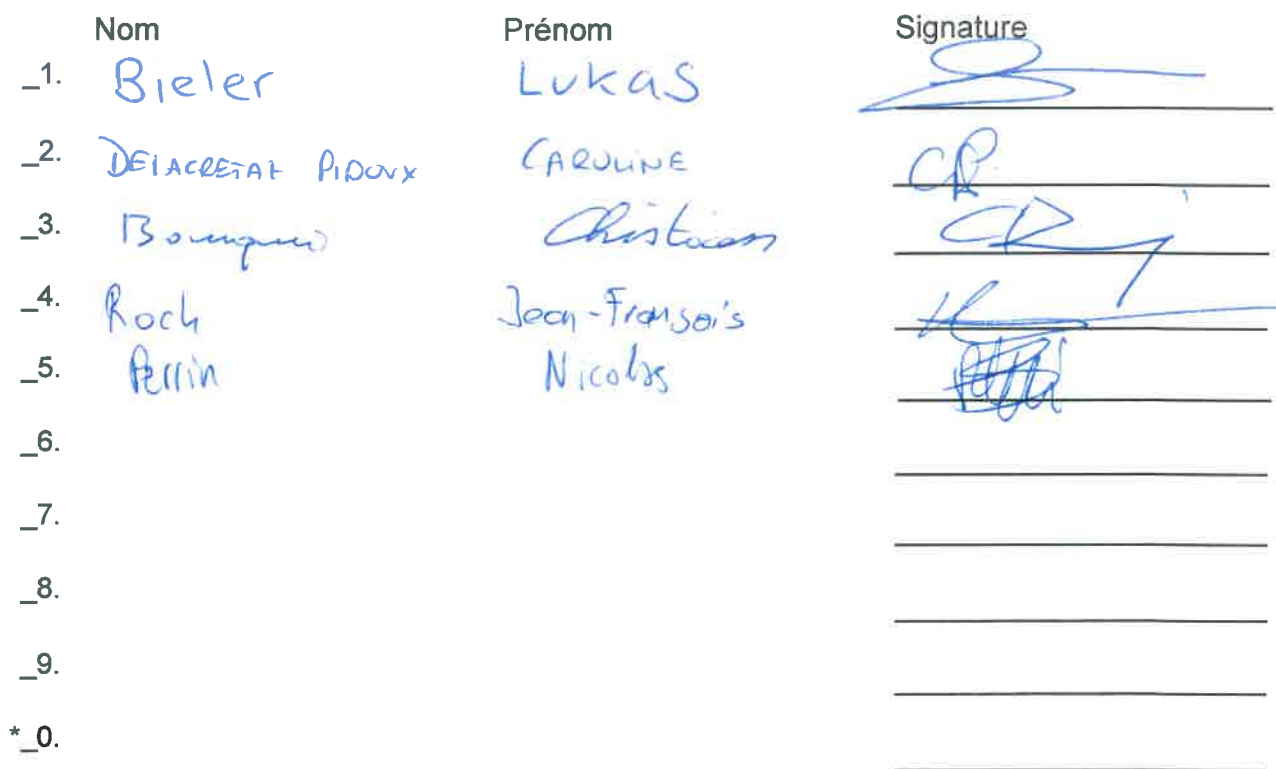 Nom Prénom Signature
_1. Bieler Lukas
_2. DELACRETAZ PIDOUX CAROLINE
_3. Christian
_4. Roch Jean-François
_5. Perrin Nicolas
_6.
_7.
_8.
_9.
*_0.